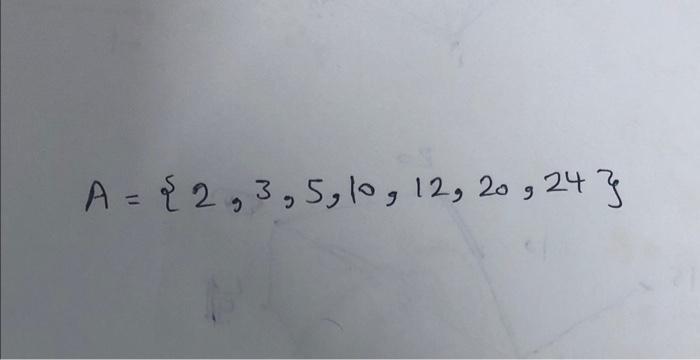 A = { 2, 3, 5, 10, 12, 20, 24 }